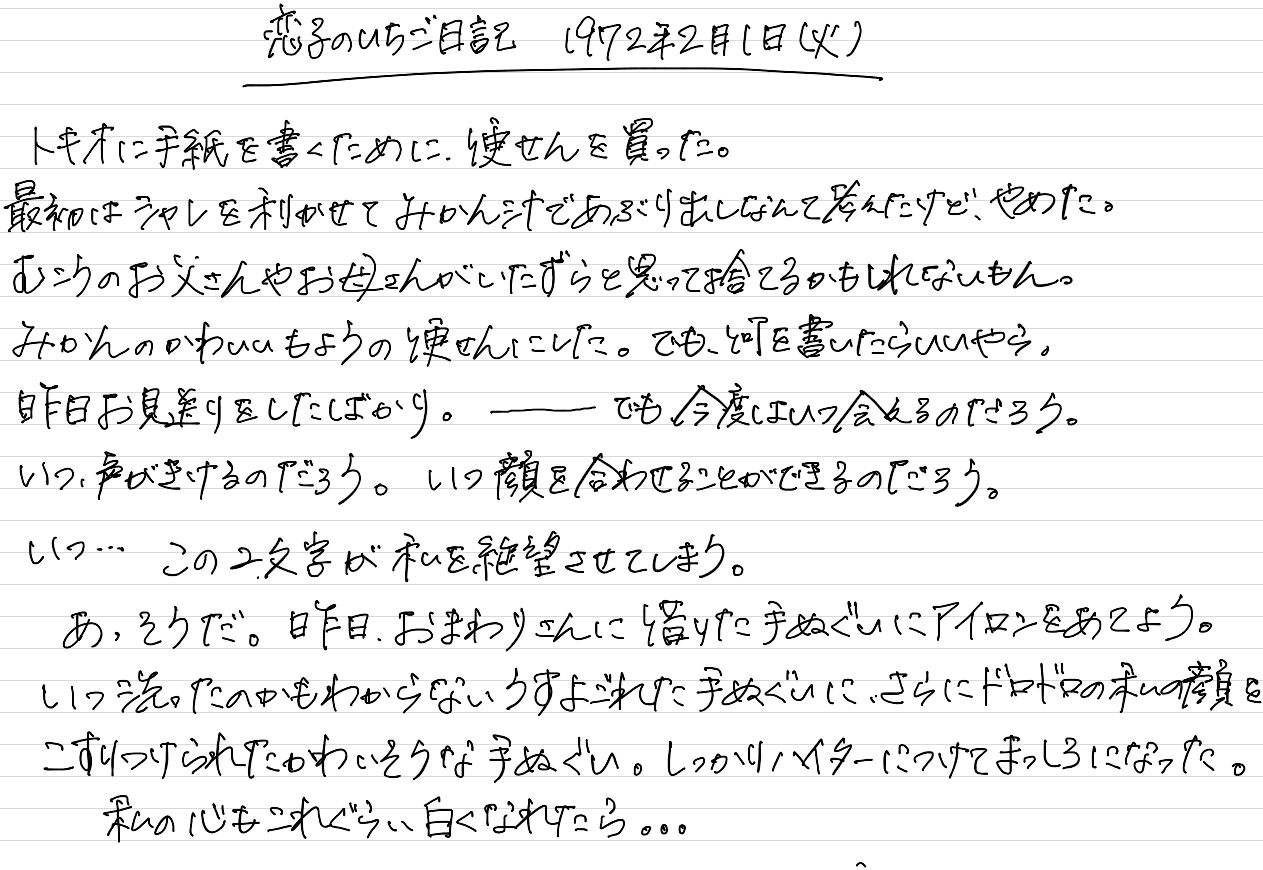 恋子のいちご日記 1972年2月1日(火)
トキオに手紙を書くために、便せんを買った。
最初はシャレを利かせてみかん汁であぶり出しなんて考えたけど、やめた。
むこうのお父さんやお母さんがいたずらと思って捨てるかもしれないもん。
みかんのかわいいもようの便せんにした。でも、何を書いたらいいやら。
昨日お見送りをしたばかり。――でも、今度はいつ会えるのだろう。
いつ、声がきけるのだろう。いつ顔を合わせることができるのだろう。
いつ… この2文字が私を絶望させてしまう。
あ、そうだ。昨日、おまわりさんに借りた手ぬぐいにアイロンをあてよう。
いつ洗ったのかもわからないうすよごれた手ぬぐいに、さらにドロドロの私の顔を
こすりつけられたかわいそうな手ぬぐい。しっかりハイターにつけてまっしろになった。
私の心もこれぐらい白くなれたら。。。